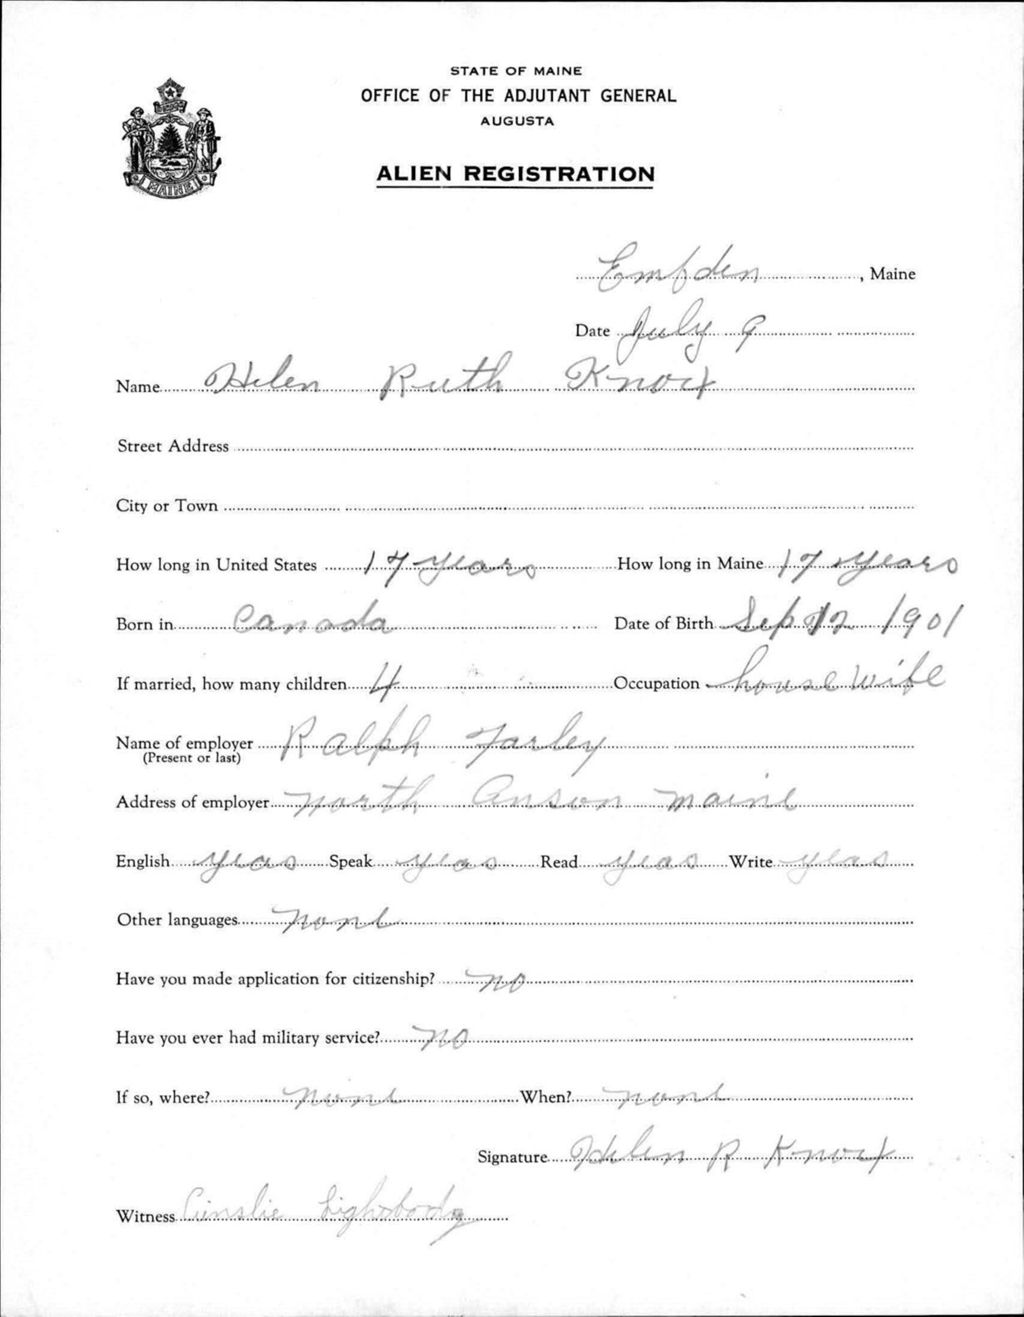 STATE OF MAINE
OFFICE OF THE ADJUTANT GENERAL
AUGUSTA
ALIEN REGISTRATION
MAINE
Embden, Maine
Date July 9
Name Helen Ruth Knox
Street Address
City or Town
How long in United States 17 years How long in Maine 17 years
Born in Canada Date of Birth Sep 12 1901
If married, how many children 4 Occupation house wife
Name of employer Ralph Farley
(Present or last)
Address of employer North Anson Maine
English yeas Speak yeas Read yeas Write yeas
Other languages none
Have you made application for citizenship? no
Have you ever had military service? no
If so, where? none When? none
Signature Helen R Knox
Witness Ainslie Lightbody